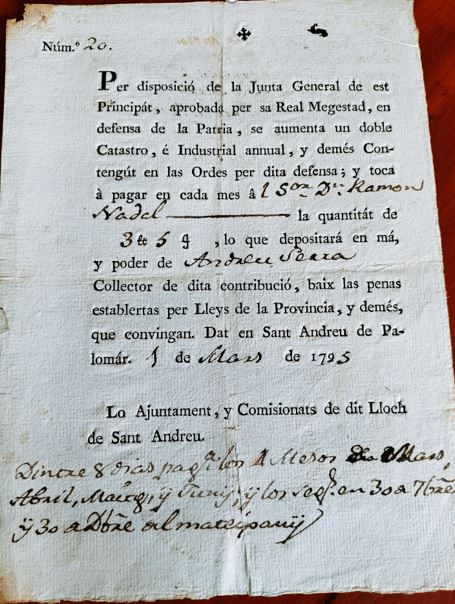 Núm.º 20.
Per disposició de la Junta General de est
Principát, aprobada per sa Real Megestad, en
defensa de la Patria, se aumenta un doble
Catastro, é Industrial annual, y demés Con-
tengút en las Ordes per dita defensa; y toca
à pagar en cada mes â l Sor. Dn. Ramon
Nadal la quantitát de
3 5 , lo que depositará en má,
y poder de Andreu Serra
Collector de dita contribució, baix las penas
establertas per Lleys de la Provincia, y demés,
que convingan. Dat en Sant Andreu de Pa-
lomár. 1 de Mars de 1795
Lo Ajuntament, y Comisionats de dit Lloch
de Sant Andreu.
Dintre 8 dias los 4 Mesos de Mars,
Abril, Maitg, ÿ Junÿ, ÿ los en 30 a 7bre
ÿ 30 a Dbre del mateix anÿ